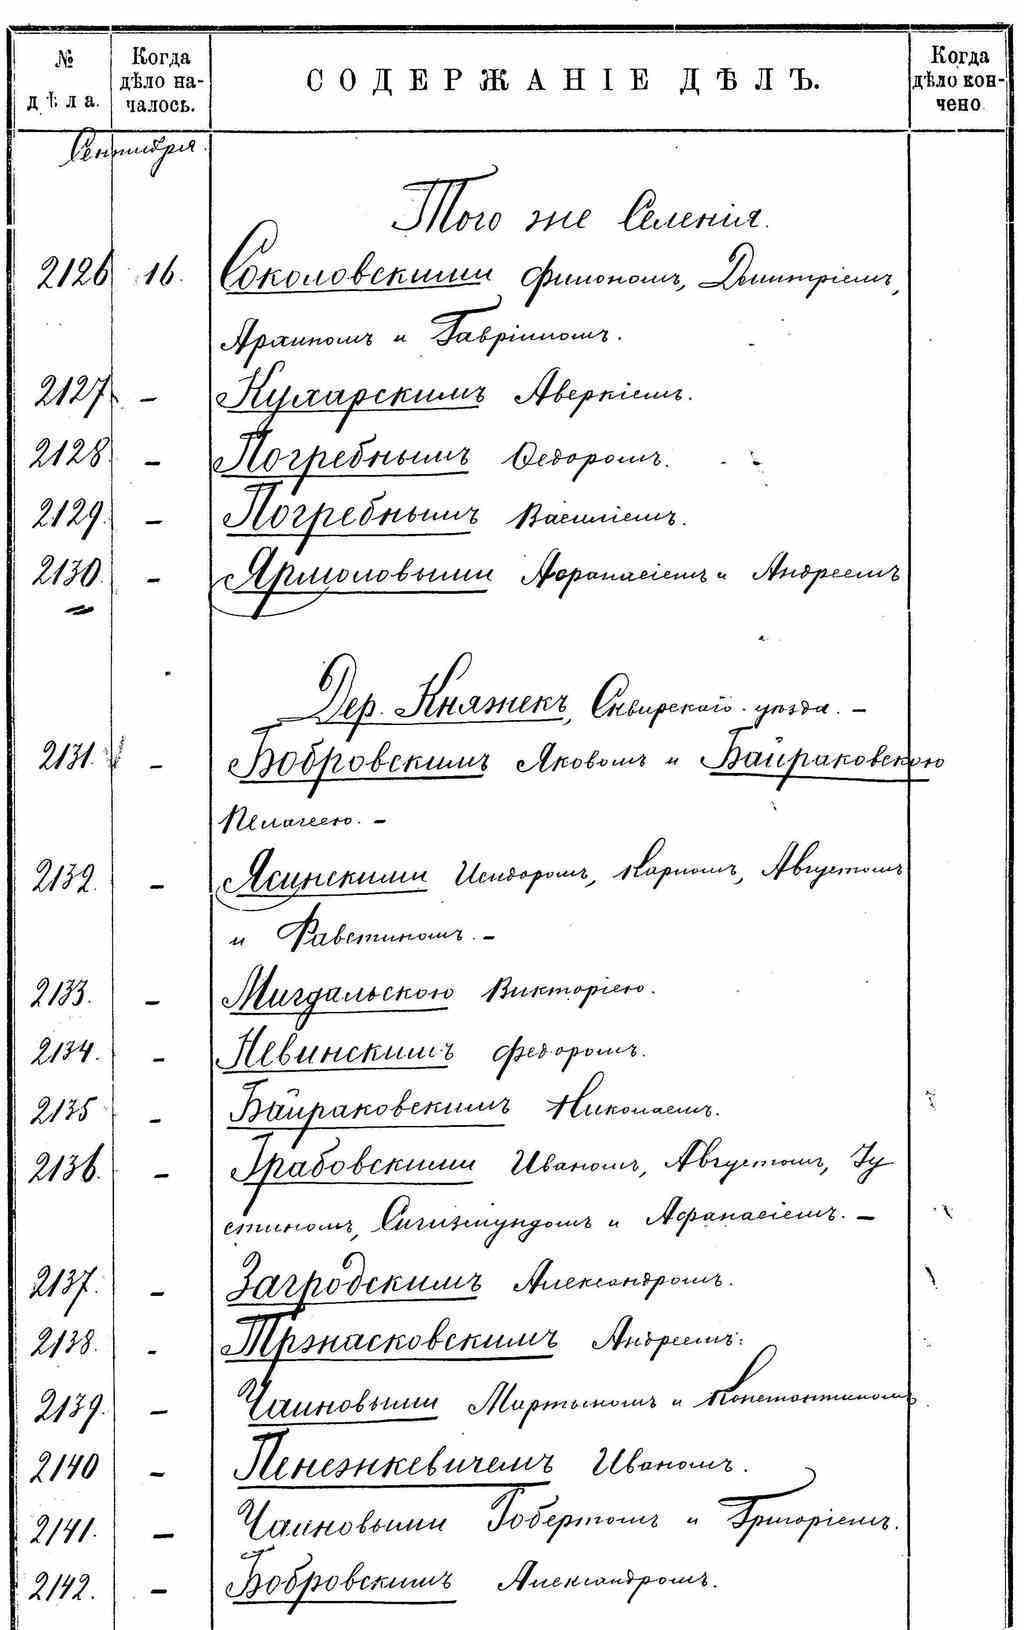 № дѣла.
Когда дѣло началось.
СОДЕРЖАНІЕ ДѢЛЪ.
Когда дѣло кончено
Сентября.
Того же Селенія.
2126 16. Соколовскими Филономъ, Дмитріемъ,
Архипомъ и Гавріиломъ.
2127 – Кухарскимъ Аверкіемъ.
2128 – Погребнымъ Ѳедоромъ.
2129. – Погребнымъ Василіемъ.
2130. – Ярмоловыми Афанасіемъ и Андреемъ
Дер. Княжекъ, Сквирскаго уѣзда. –
2131. – Бобровскимъ Яковомъ и Байраковскою
Пелагеею. –
2132. – Ясинскими Исидоромъ, Карпомъ, Августомъ
и Фавстиномъ. –
2133. – Мигдальскою Викторіею.
2134. – Невинскимъ Федоромъ.
2135 – Байраковскимъ Николаемъ.
2136. – Грабовскими Иваномъ, Августомъ, Іу
стиномъ, Сигизмундомъ и Афанасіемъ. –
2137. – Загродскимъ Александромъ.
2138. – Андреемъ.
2139. – Мартыномъ и Константиномъ
2140 – Пенежкевичемъ Иваномъ.
2141. – Робертомъ и Григоріемъ.
2142. – Бобровскимъ Александромъ.